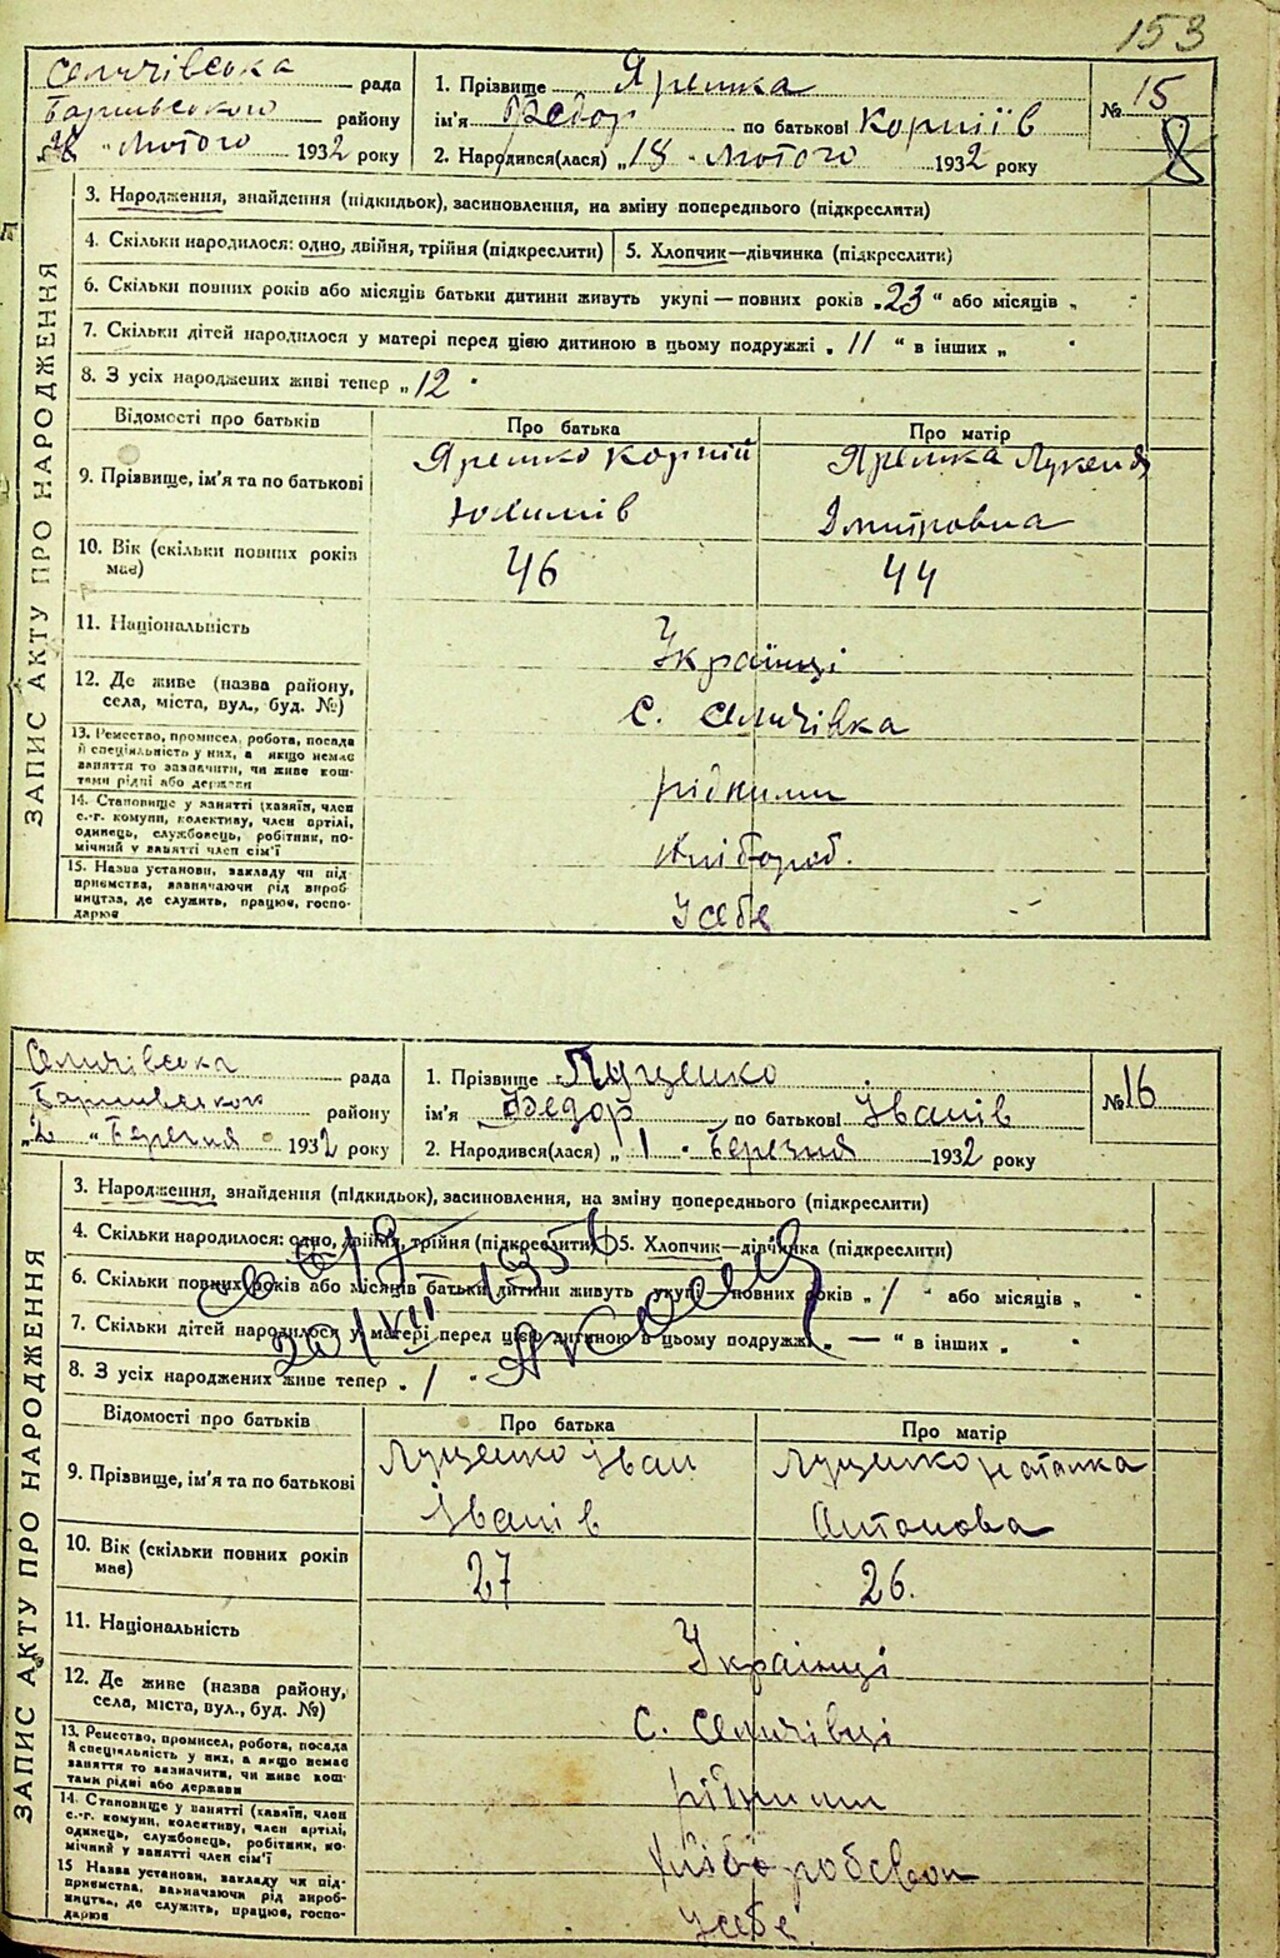 153
Селичівська рада
Баришівського району
„28 " Лютого 1932 року
1. Прізвище Яремка
ім'я Федор по батькові Корніїв
2. Народився(лася) „18 " Лютого 1932 року
№ 15
8
ЗАПИС АКТУ ПРО НАРОДЖЕННЯ
3. Народження, знайдення (підкидьок), засиновлення, на зміну попереднього (підкреслити)
4. Скільки народилося: одно, двійня, трійня (підкреслити)
5. Хлопчик—дівчинка (підкреслити)
6. Скільки повних років або місяців батьки дитини живуть укупі — повних років „23 " або місяців „ "
7. Скільки дітей народилося у матері перед цією дитиною в цьому подружжі „ 11 " в інших „ "
8. З усіх народжених живі тепер „ 12 "
Відомості про батьків Про батька Про матір
9. Прізвище, ім'я та по батькові Яремко Корній Яремка Лукеня
Юхимів Дмитровна
10. Вік (скільки повних років 46 44
має)
11. Національність Українці
12. Де живе (назва району,
села, міста, вул., буд. №) с. Селичівка
13. Ремество, промисел, робота, посада
й спеціяльність у них, а якщо немає
заняття то зазначити, чи живе кош-
тами рідні або держави рідними
14. Становище у занятті (хазяїн, член
с.-г. комуни, колективу, член артілі,
одинець, службовець, робітник, по-
мічний у занятті член сім'ї хлібороб.
15. Назва установи, закладу чи під
приємства, зазначаючи рід вироб
ництва, де служить, працює, госпо-
дарює У себе
Селичівська рада
району
„2 " Березня 1932 року
1. Прізвище Луценко
ім'я Федор по батькові Іванів
2. Народився(лася) „ 1 " Березня 1932 року
№ 16
ЗАПИС АКТУ ПРО НАРОДЖЕННЯ
3. Народження, знайдення (підкидьок), засиновлення, на зміну попереднього (підкреслити)
4. Скільки народилося: одно, двійня, трійня (підкреслити)
5. Хлопчик—дівчинка (підкреслити)
6. Скільки повних років або місяців батьки дитини живуть укупі — повних років „ 1 " або місяців „ "
7. Скільки дітей народилося у матері перед цією дитиною в цьому подружжі „ — " в інших „ "
8. З усіх народжених живе тепер „ 1 "
Відомості про батьків Про батька Про матір
9. Прізвище, ім'я та по батькові Луценко Іван Луценко Наталка
Іванів Антонова
10. Вік (скільки повних років 27 26.
має)
11. Національність Українці
12. Де живе (назва району,
села, міста, вул., буд. №) с. Селичівці
13. Ремество, промисел, робота, посада
й спеціяльність у них, а якщо немає
заняття то зазначити, чи живе кош-
тами рідні або держави рідними
14. Становище у занятті (хазяїн, член
с.-г. комуни, колективу, член артілі,
одинець, службовець, робітник, по-
мічний у занятті член сім'ї
15 Назва установи, закладу чи під-
приємства, зазначаючи рід вироб-
ництва, де служить, працює, госпо-
дарює У себе